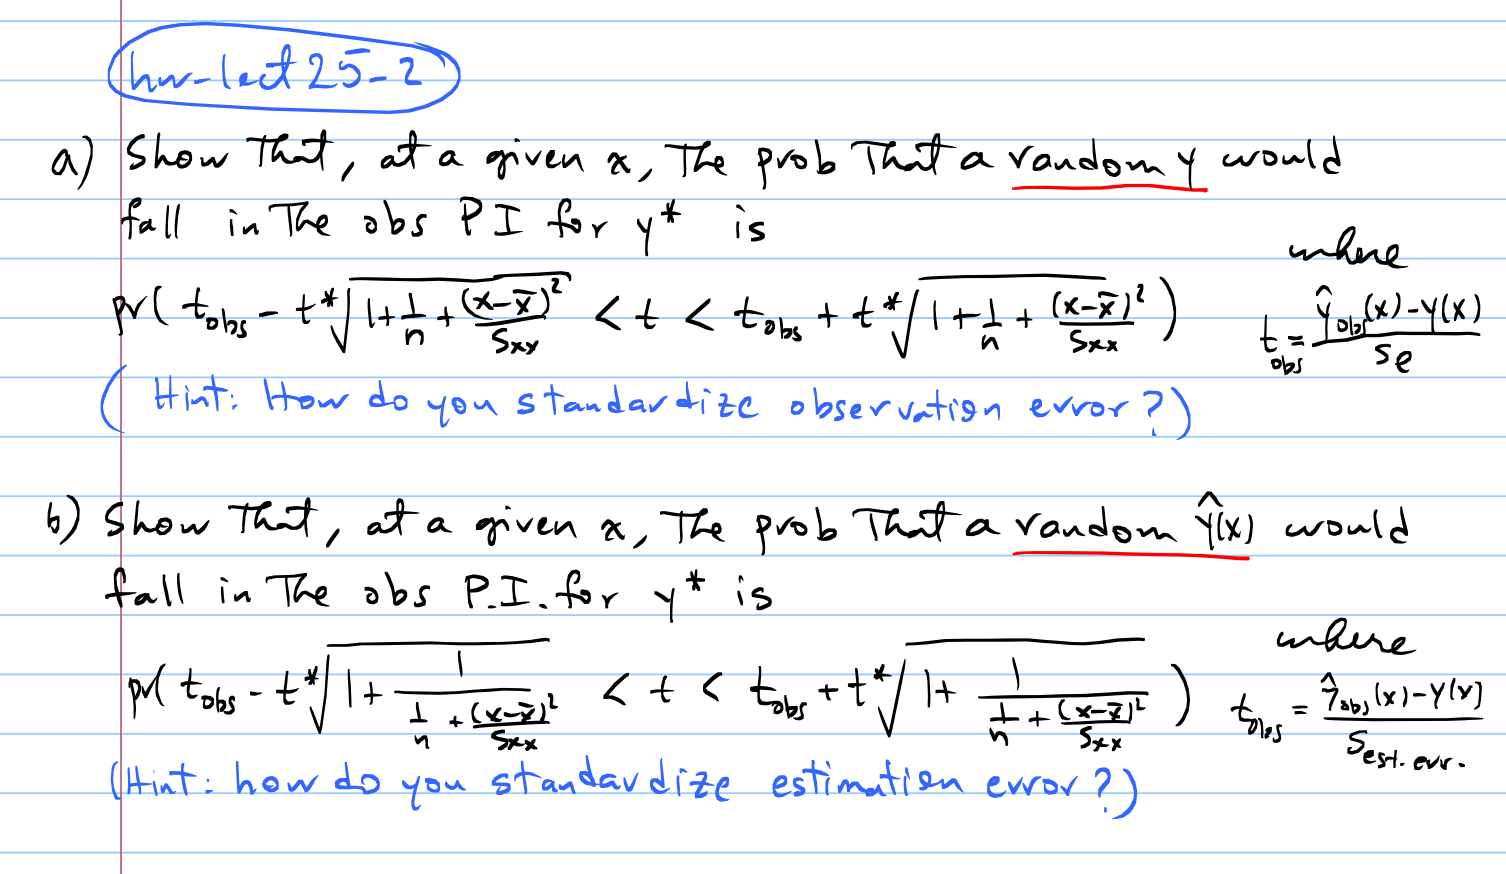 hw-lect 25-2
a) Show That, at a given x, The prob That a random y would
fall in The obs PI for y* is
where
pr( t_obs - t* √(1 + 1/n + (x-x̄)²/Sxx) < t < t_obs + t* √(1 + 1/n + (x-x̄)²/Sxx) ) t_obs = (ŷ_obs(x) - y(x))/s_e
( Hint: How do you standardize observation error?)
b) Show That, at a given x, The prob That a random ŷ(x) would
fall in The obs P.I. for y* is
where
pr( t_obs - t* √(1 + 1/(1/n + (x-x̄)²/Sxx)) < t < t_obs + t* √(1 + 1/(1/n + (x-x̄)²/Sxx)) ) t_obs = (ŷ_obs(x) - y(x))/S_est. err.
(Hint: how do you standardize estimation error?)